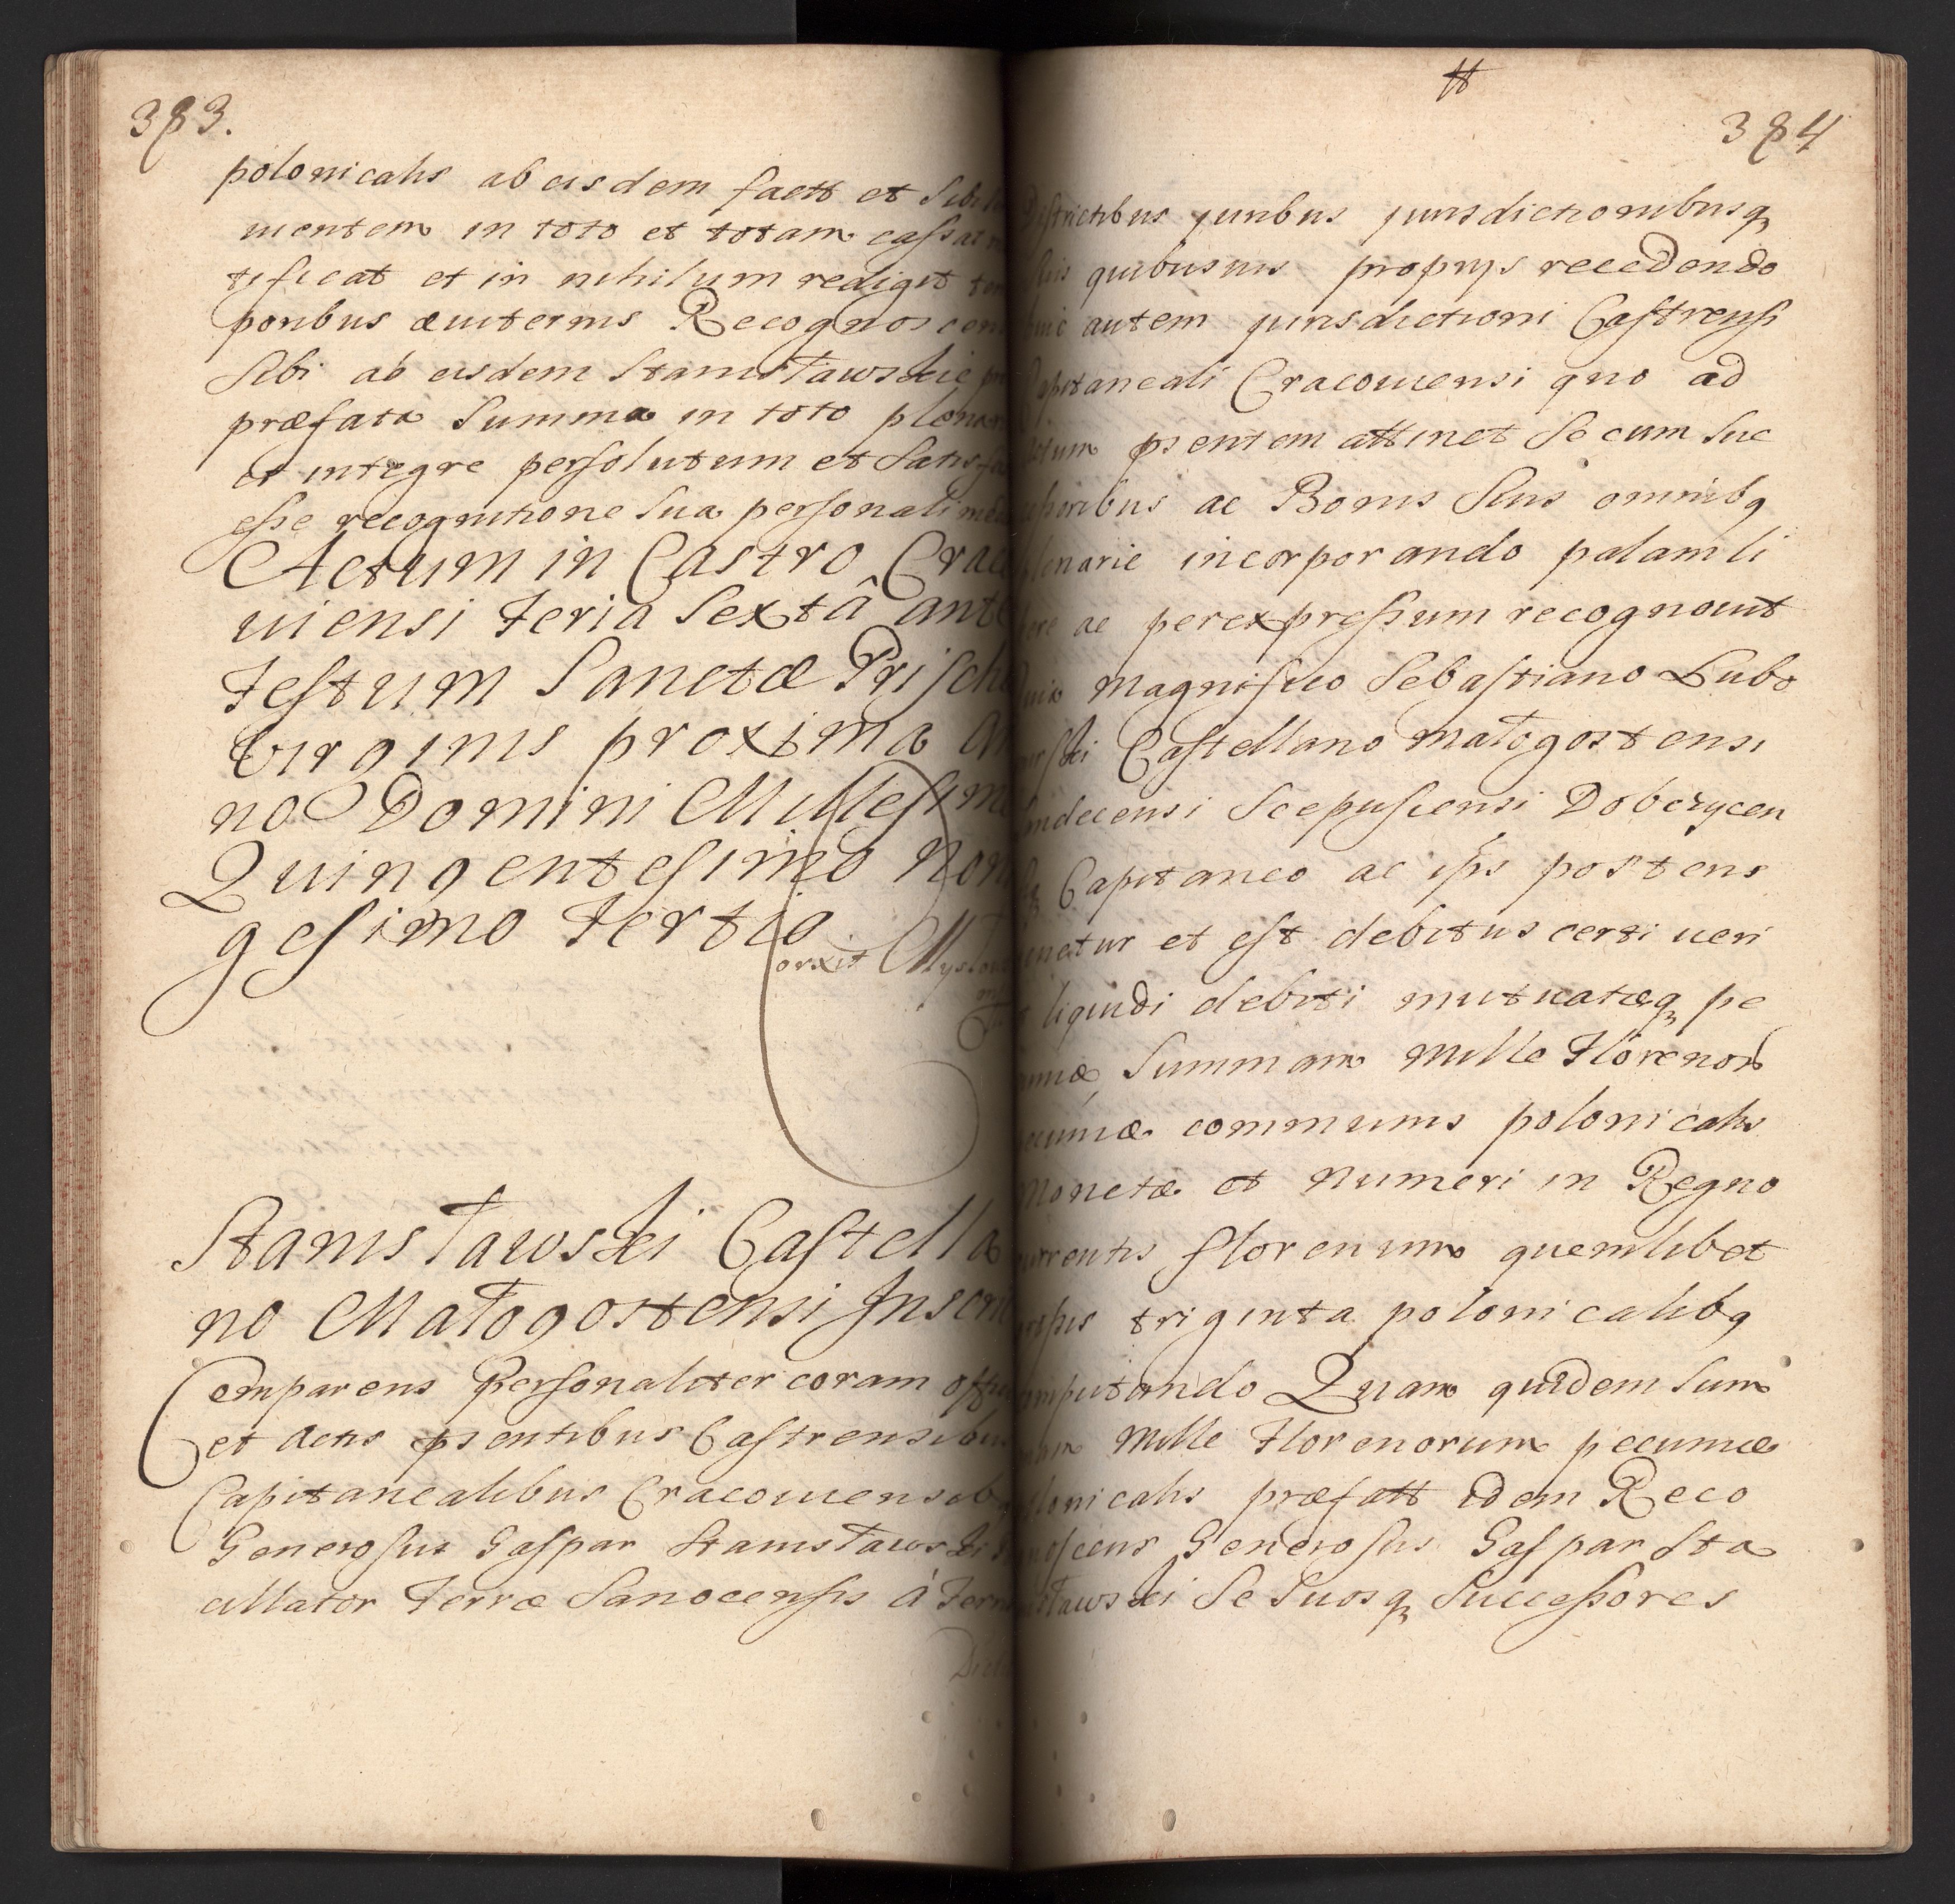 383.
polonicalis ab eisdem factt et Sibi
mentem in toto et totam cassat
tificat et in nihilum redigit
poribus æviternis Recognoscen
Sibi ab eisdem Stanisławskie
præfata Summa in toto plenar
et integre persolutum et Satisfa
esse recognitione Sua personali
Actum in Castro Craco
viensi Feria Sexta ante
Festum Sanctæ Priscæ
Virginis proxima An
no Domini Millesimo
Quingentesimo Nona
gesimo Tertio
Stanisławski Castella
no Małogostensi Inscri
Comparens Personaliter coram offi
et Actis psentibus Castrensibus
Capitanealibus Cracoviensib
Generosus Gaspar Stanisławski
cillator Terræ Sanocensis à Terr
384
Districtibus juribus jurisdictionibusq
suis quibusvis propriis recedendo
huic autem jurisdictioni Castrensi
Capitaneali Cracoviensi quo ad
Actum psentem attinet Se cum Suc
cessoribus ac Bonis Suis omnibq
plenarie incorporando palam li
bere ac per expressum recognovit
Quia Magnifico Sebastiano Lubo
mirski Castellano Małogostensi
Sandecensi Scepusiensi Dobczycen
Capitaneo ac ips postens
tenetur et est debitus certi veri
et liquidi debiti mutuatæq pe
cuniæ Summam Mille Florenor
pecuniæ communis polonicalis
Monetæ et Numeri in Regno
currentis florenum quemlibet
grossis triginta polonicalibq
computando Quam quidem Sum
mam Mille Florenorum pecuniæ
polonicalis præfatt idem Reco
gnoscens Generosus Gaspar Sta
nisławski Se Suosq Successores